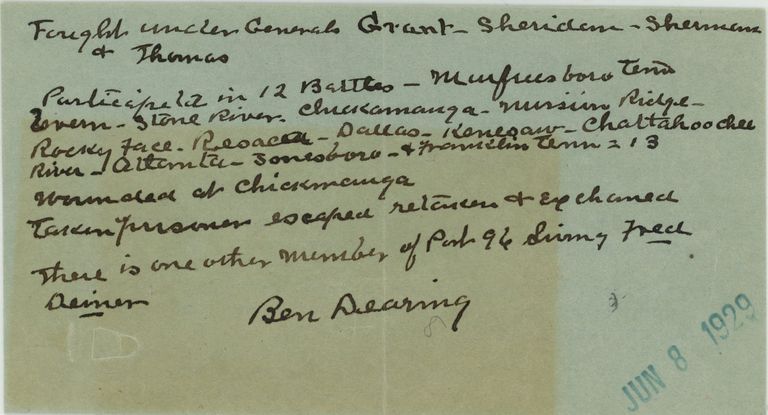 Fought under Generals Grant - Sheridan - Sherman
& Thomas
Participated in 12 Battles - Murfreesboro Tenn
Stone River. Chickamauga - Mission Ridge -
Rocky Face - Resaca - Dallas - Kenesaw - Chattahoochee
River - Atlanta - Jonesboro - & Franklin Tenn = 13
Wounded at Chickmauga
Taken prisoner escaped retaken & Exchaned
There is one other member of Post 96 living Fred
Deiner
Ben Dearing
JUN 8 1929